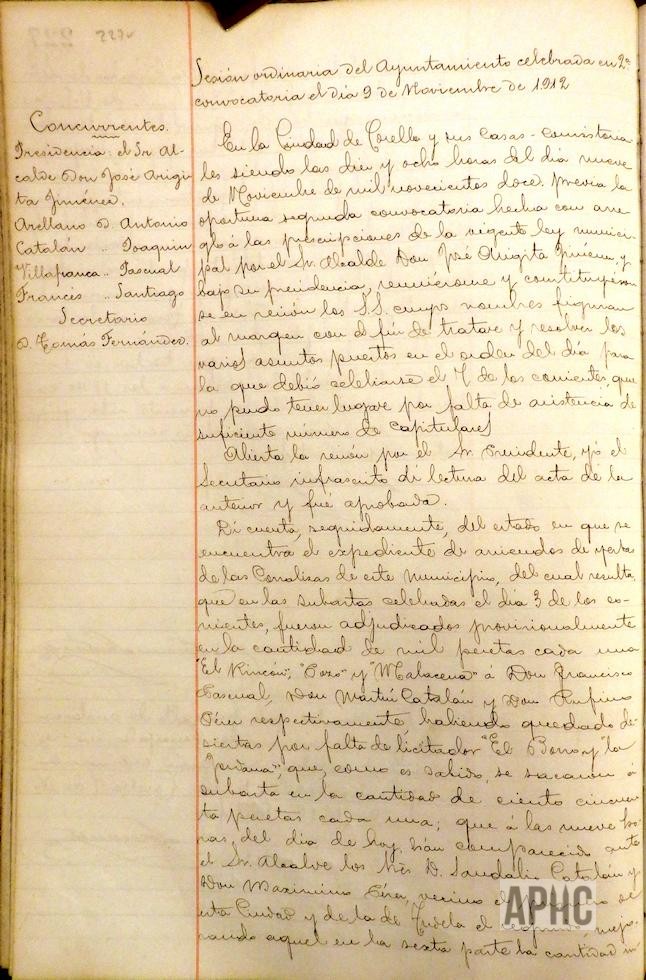 227v
Sesión ordinaria del Ayuntamiento celebrada en 2ª
convocatoria el día 9 de Noviembre de 1912
Concurrentes.
Presidencia: el Sr Al-
calde Don José Arigi-
ta Jiménez.
Arellano D. Antonio
Catalán .. Joaquin
Villafranca .. Pascual
Francés .. Santiago
Secretario
D. Tomás Fernández.
En la Ciudad de Corella y sus Casas-Consistoria-
les siendo las diez y ocho horas del día nueve
de Noviembre de mil novecientos doce. Previa la
oportuna segunda convocatoria hecha con arre-
glo á las prescripciones de la vigente ley munici-
pal por el Sr. Alcalde Don José Arigita Jiménez y
bajo su presidencia, reunieronse y constituyeron
se en sesión los S.S. cuyos nombres figuran
al margen con el fin de tratar y resolver los
varios asuntos puestos en el orden del día para
la que debió celebrarse el 7 de los corrientes, que
no pudo tener lugar por falta de asistencia de
suficiente número de Capitulares
Abierta la sesión por el Sr. Presidente, yo el
Secretario infrascrito di lectura del acta de la
anterior y fué aprobada.
Di cuenta, seguidamente, del estado en que se
encuentra el expediente de arriendos de yerbas
de las Corralizas de este municipio, del cual resulta,
que en las subastas celebradas el día 3 de los co-
rrientes, fueron adjudicados provisionalmente
en la cantidad de mil pesetas cada una
"El Rincón", "Pozo" y "Malacena" á Don Francisco
Pascual, Don Martín Catalán y Don Rufino
Pérez respectivamente habiendo quedado de-
siertas por falta de licitador "El Borro y "la
que, como es sabido, se sacaron á
subasta en la cantidad de ciento cincuen
ta pesetas cada una; que á las nueve ho-
ras del día de hoy, han comparecido ante
el Sr. Alcalde los D. Sandalio Catalán y
Don Maximino Pérez, vecino el primero de
esta Ciudad y de la de Tudela el segundo, mejo-
rando aquel en la sexta parte la cantidad
APHC